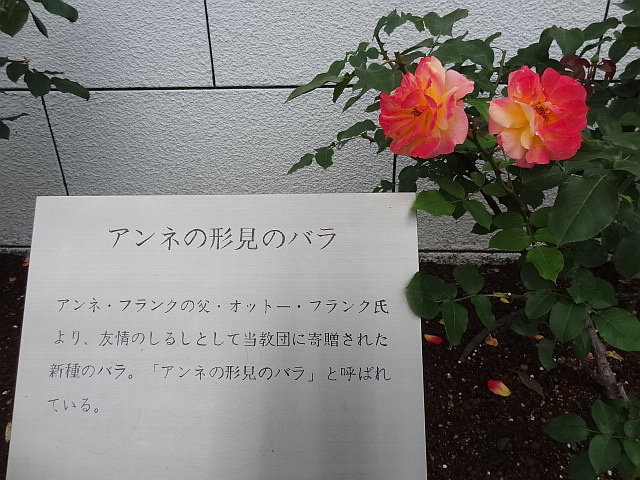 アンネの形見のバラ
アンネ・フランクの父・オットー・フランク氏
より、友情のしるしとして当教団に寄贈された
新種のバラ。「アンネの形見のバラ」と呼ばれ
ている。